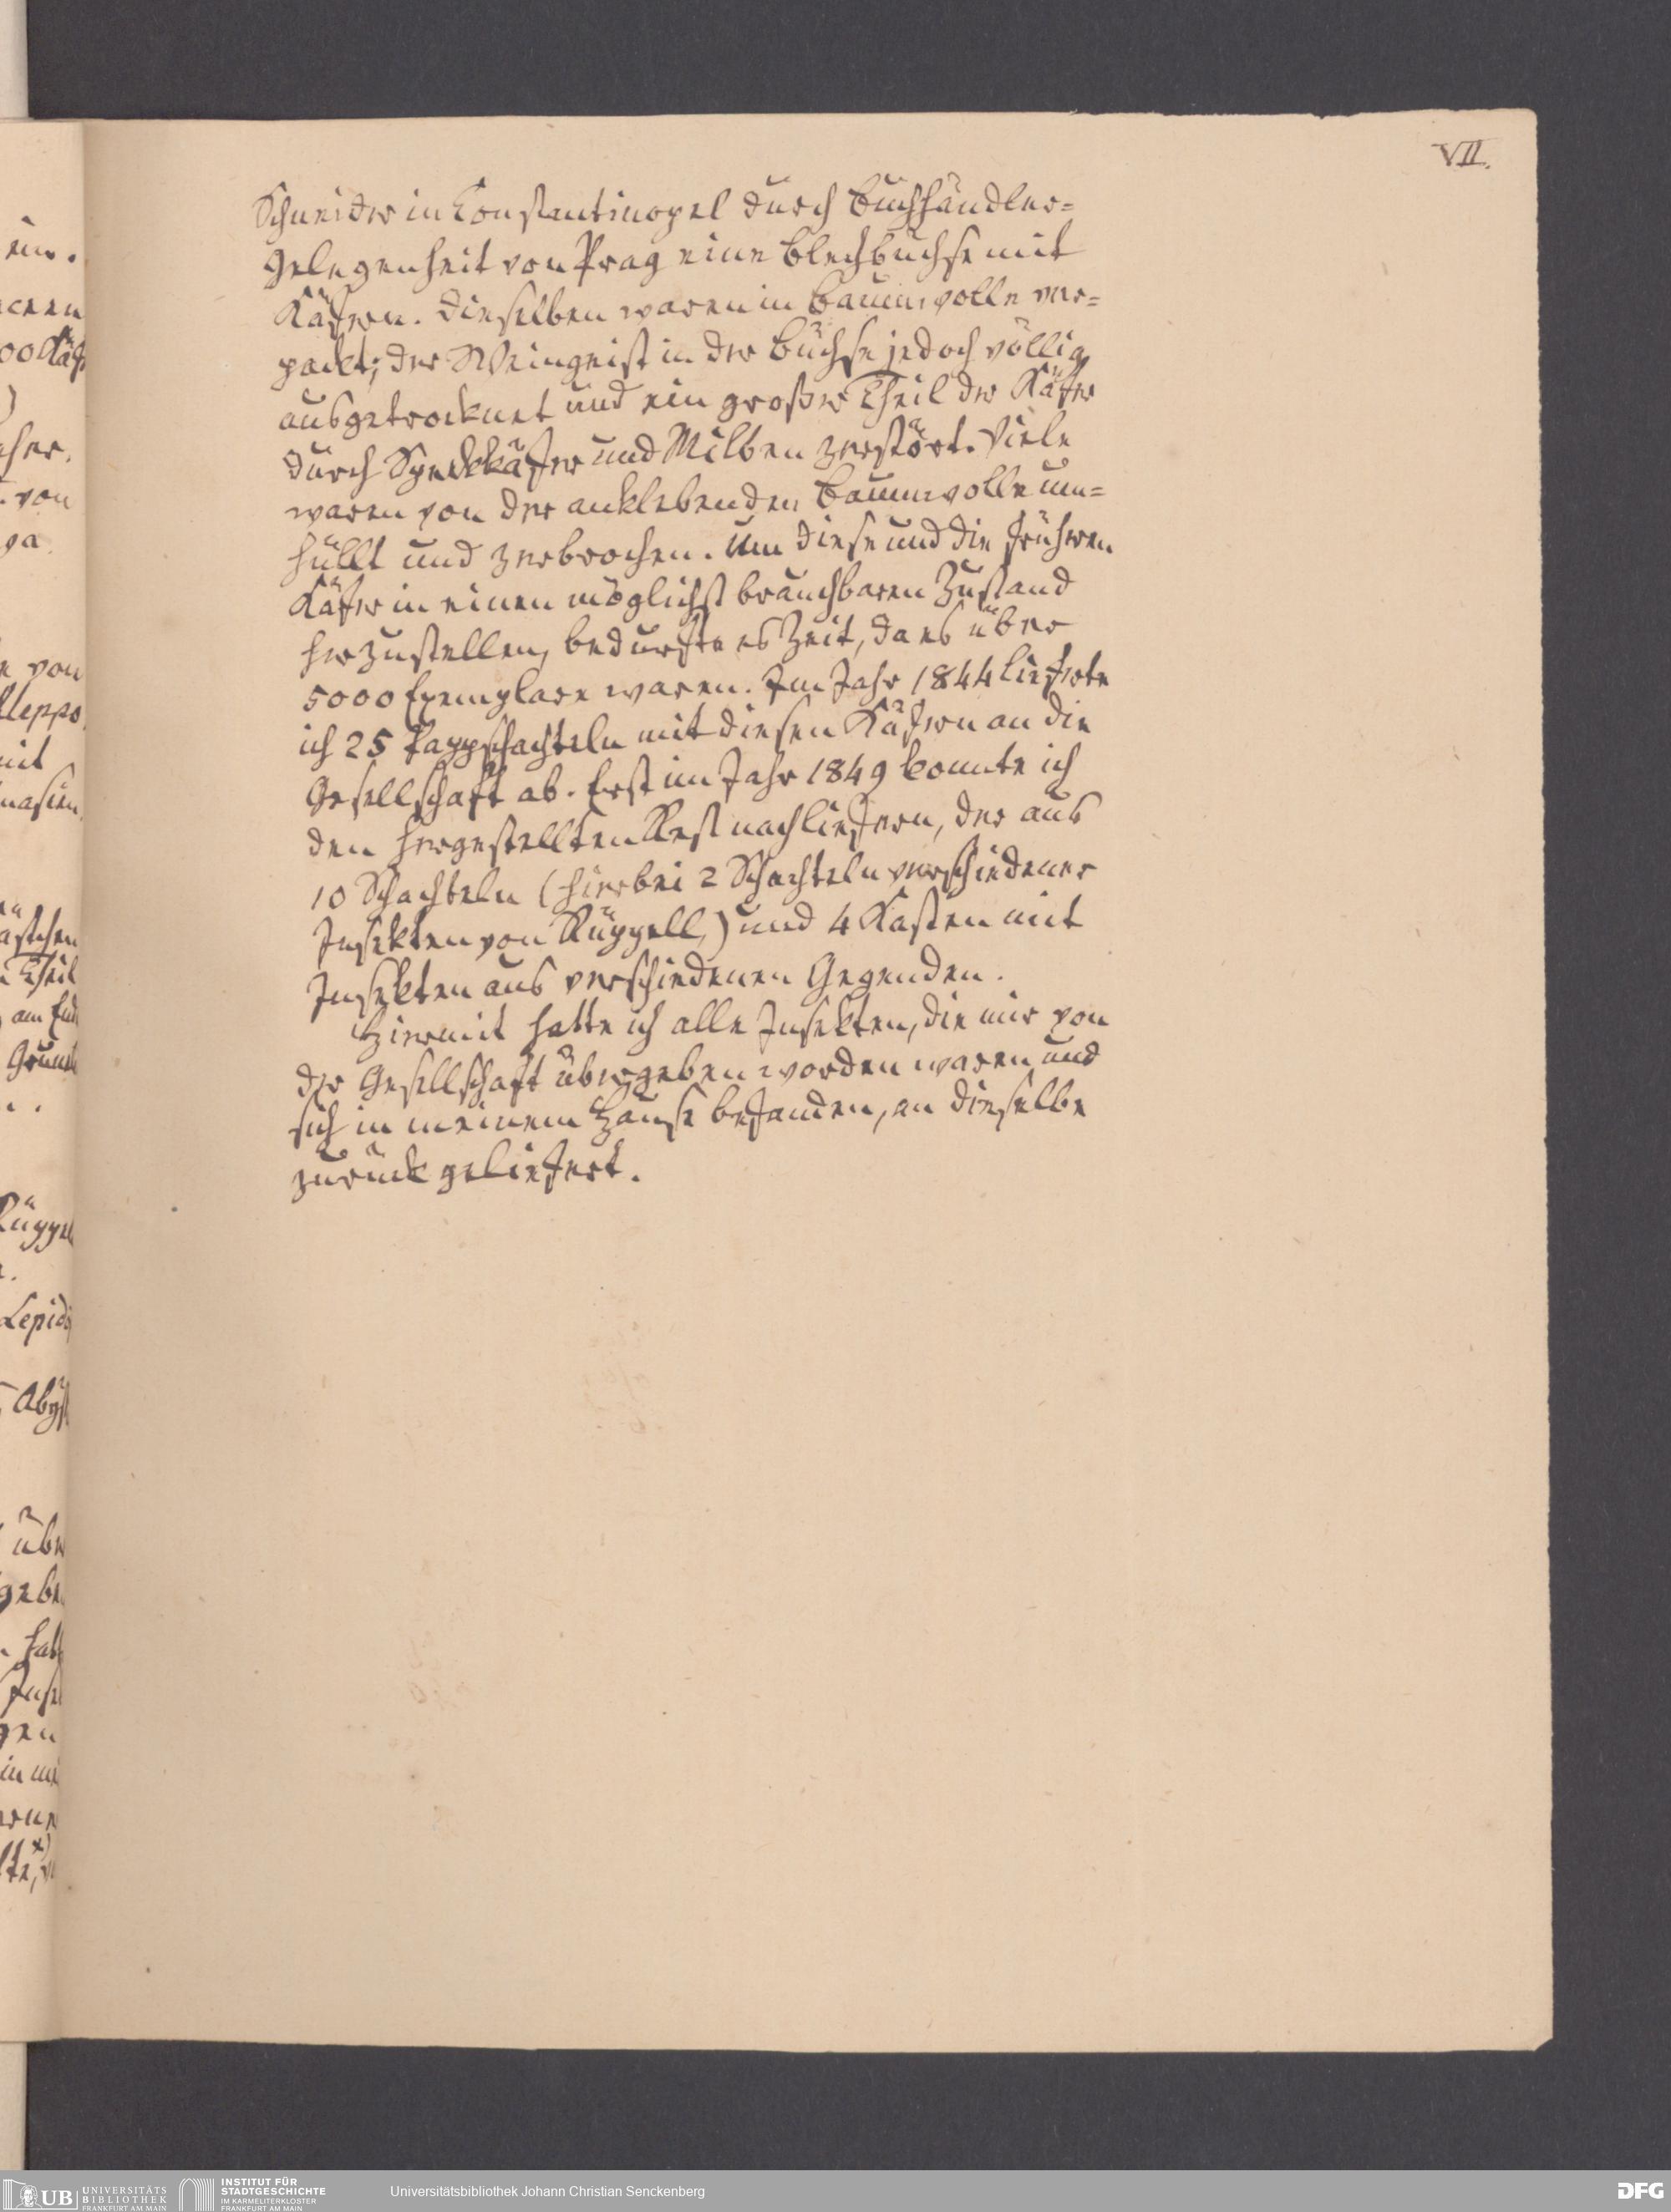 VII.
Schneider in Constantinopel durch Buchhändler=
gelegenheit von Prag eine Blechbüchse mit
Käfern. Dieselben waren in Baumwolle ver=
packt; der Weingeist in der Büchse jedoch völlig
ausgetrocknet und ein großer Theil der Käfer
durch Speckkäfer und Milben zerstört. Viele
waren von der anklebenden Baumwolle um=
hüllt und zerbrochen. Um diese und die früheren
Käfer in einen möglichst brauchbaren Zustand
herzustellen, bedurfte es Zeit, da es über
5000 Exemplare waren. Im Jahr 1844 lieferte
ich 25 Pappschachteln mit diesen Käfern an die
Gesellschaft ab. Erst im Jahr 1849 konnte ich
den hergestellten Rest nachliefern, der aus
10 Schachteln (hierbei 2 Schachteln verschiedener
Insekten von Rüppell,) und 4 Kasten mit
Insekten aus verschiedenen Gegenden.
Hiermit hatte ich alle Insekten, die mir von
der Gesellschaft übergeben worden waren und
sich in meinem Hause befanden, an dieselbe
zurück geliefert.
UB UNIVERSITÄTS
BIBLIOTHEK
FRANKFURT AM MAIN
INSTITUT FÜR
STADTGESCHICHTE
IM KARMELITERKLOSTER
FRANKFURT AM MAIN
Universitätsbibliothek Johann Christian Senckenberg
DFG